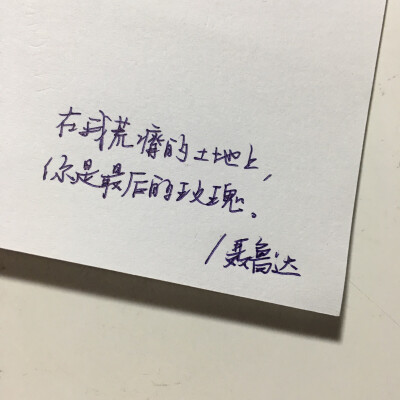 在我荒瘠的土地上,
你是最后的玫瑰。
/聂鲁达